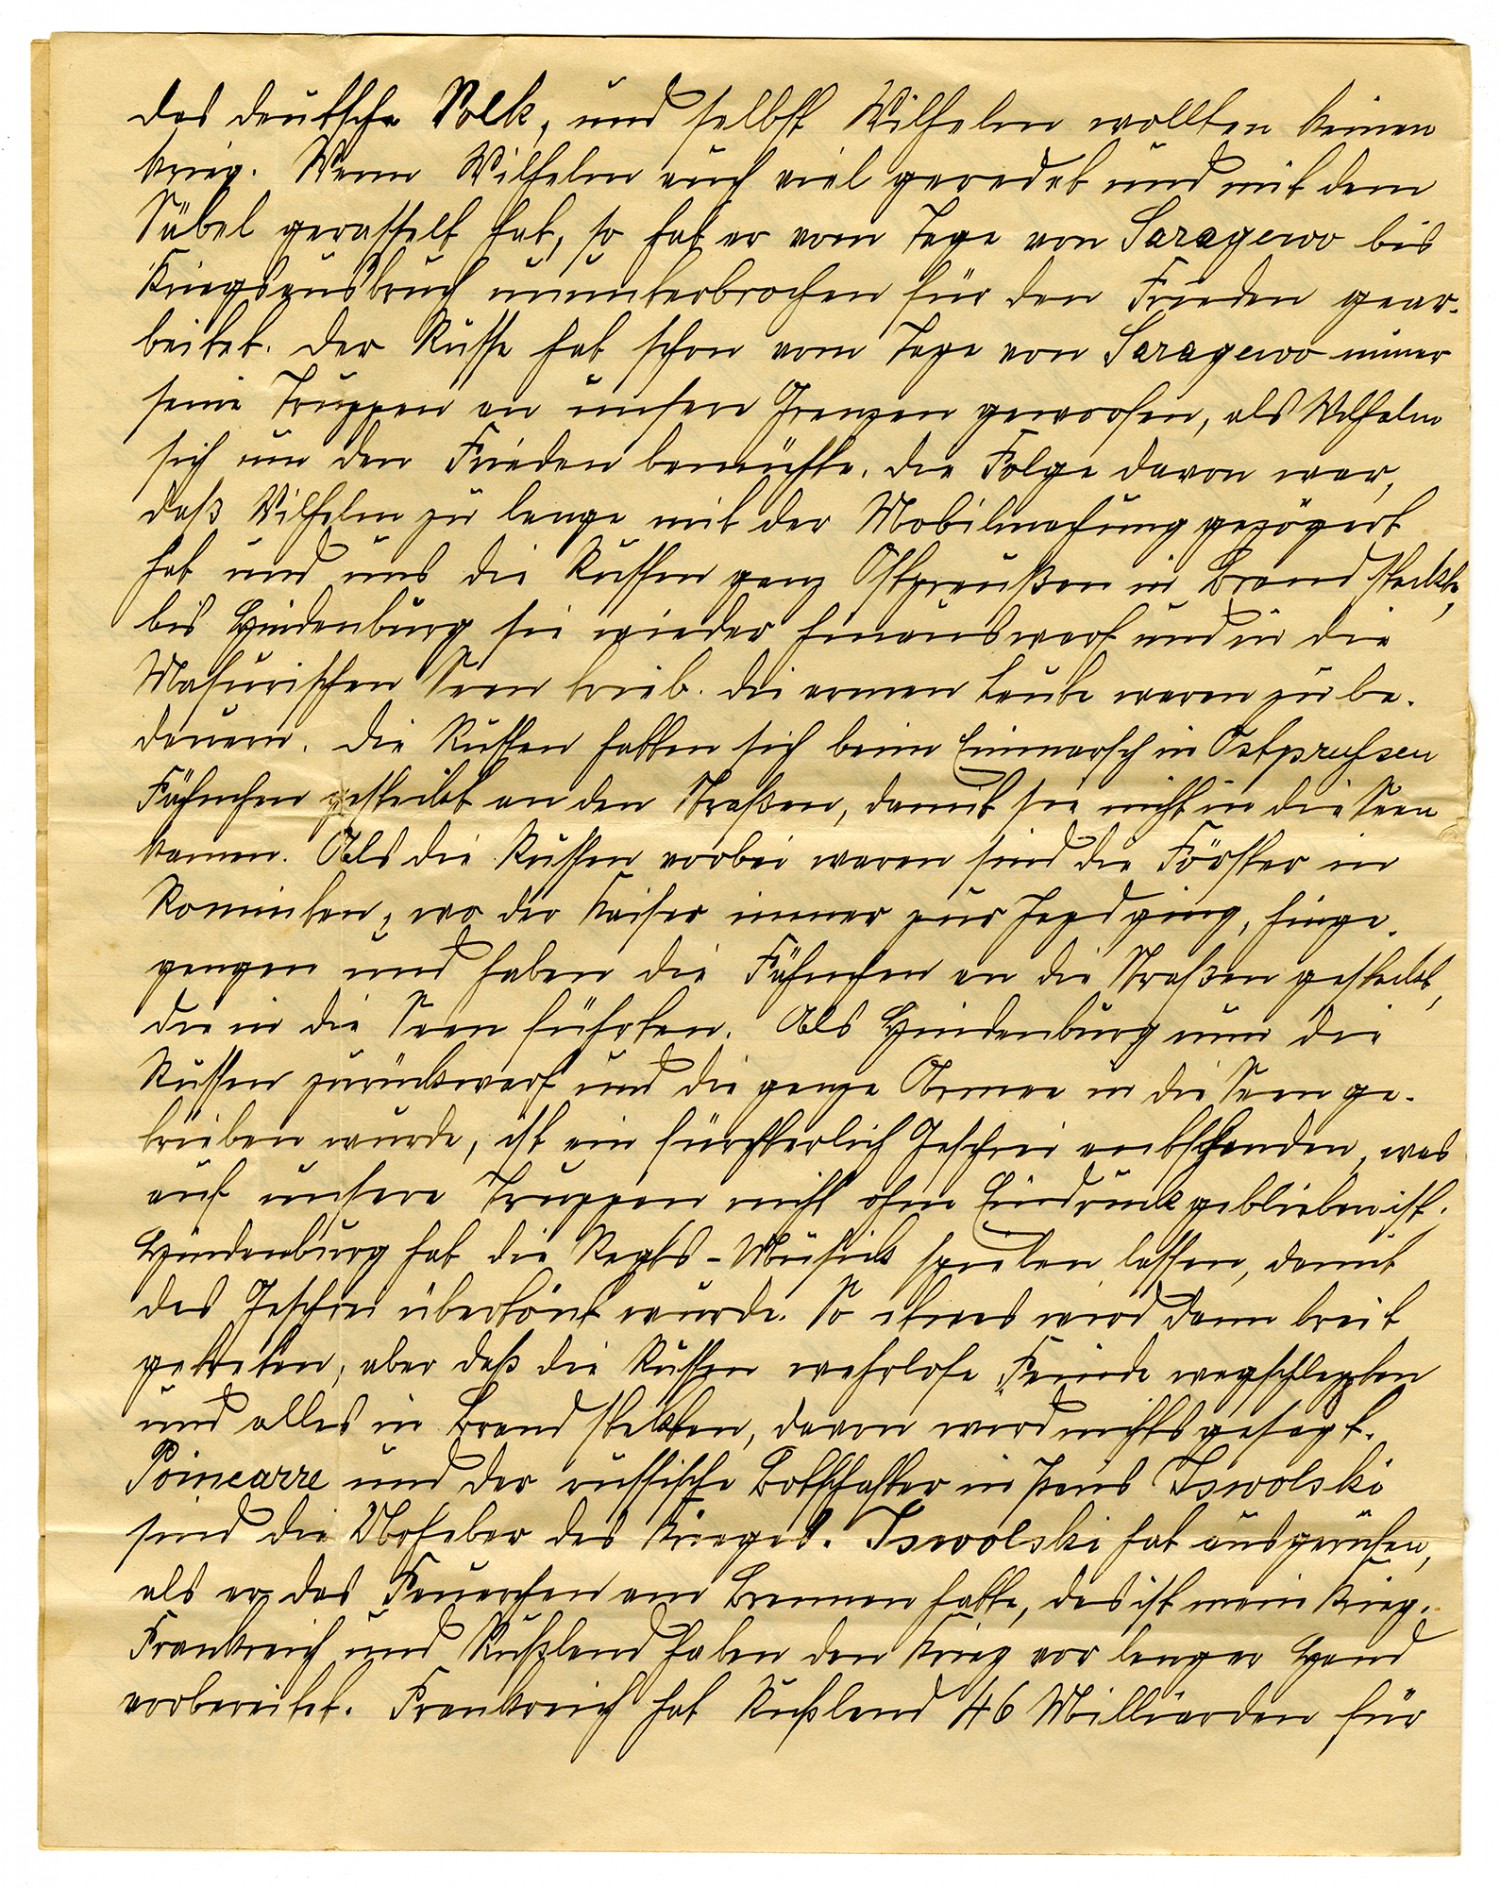 das deutsche Volk, und selbst Wilhelm wollten keinen
Krieg. Wenn Wilhelm auch viel geredet und mit dem
Säbel gerasselt hat, so hat er vom Tage von Saragewo bis
Kriegsausbruch ununterbrochen für den Frieden gear-
beitet. Der Russe hat schon vom Tage von Saragewo immer
seine Truppen an unsere Grenzen geworfen, als Wilhelm
sich um den Frieden bemühte. Die Folge davon war,
daß Wilhelm zu lange mit der Mobilmachung gezögert
hat und uns die Russen ganz Ostpreußen in Brand steckte,
bis Hindenburg sie wieder hinauswarf und in die
Masurischen Seen trieb. Die armen Leute waren zu be-
dauern. Die Russen hatten sich beim Einmarsch in Ostpreussen
Fähnchen gesteckt an den Straßen, damit sie nicht in die Seen
kamen. Als die Russen vorbei waren sind die Förster in
Rominten, wo der Kaiser immer zur Jagd ging, hinge-
gangen und haben die Fähnchen an die Straßen gesteckt,
die in die Seen führten. Als Hindenburg nun die
Russen zurückwarf und die ganze Armee in die Seen ge-
trieben wurde, ist ein fürchterlich Geschrei entstanden, was
auf unsere Truppen nicht ohne Eindruck geblieben ist.
Hindenburg hat die Regts-Musick spielen lassen, damit
das Geschrei übertönt wurde. So etwas wird dann breit
getreten, aber daß die Russen wehrlose Feinde wegschleppten
und alles in Brand steckten, davon wird nichts gesagt.
Poincarre und der russische Botschafter in Paris Iswolski
sind die Urheber des Krieges. Iswolski hat ausgerufen,
als er das Feuerchen am Brennen hatte, das ist mein Krieg.
Frankreich und Rußland haben den Krieg vor langer Hand
vorbereitet. Frankreich hat Rußland 46 Milliarden für